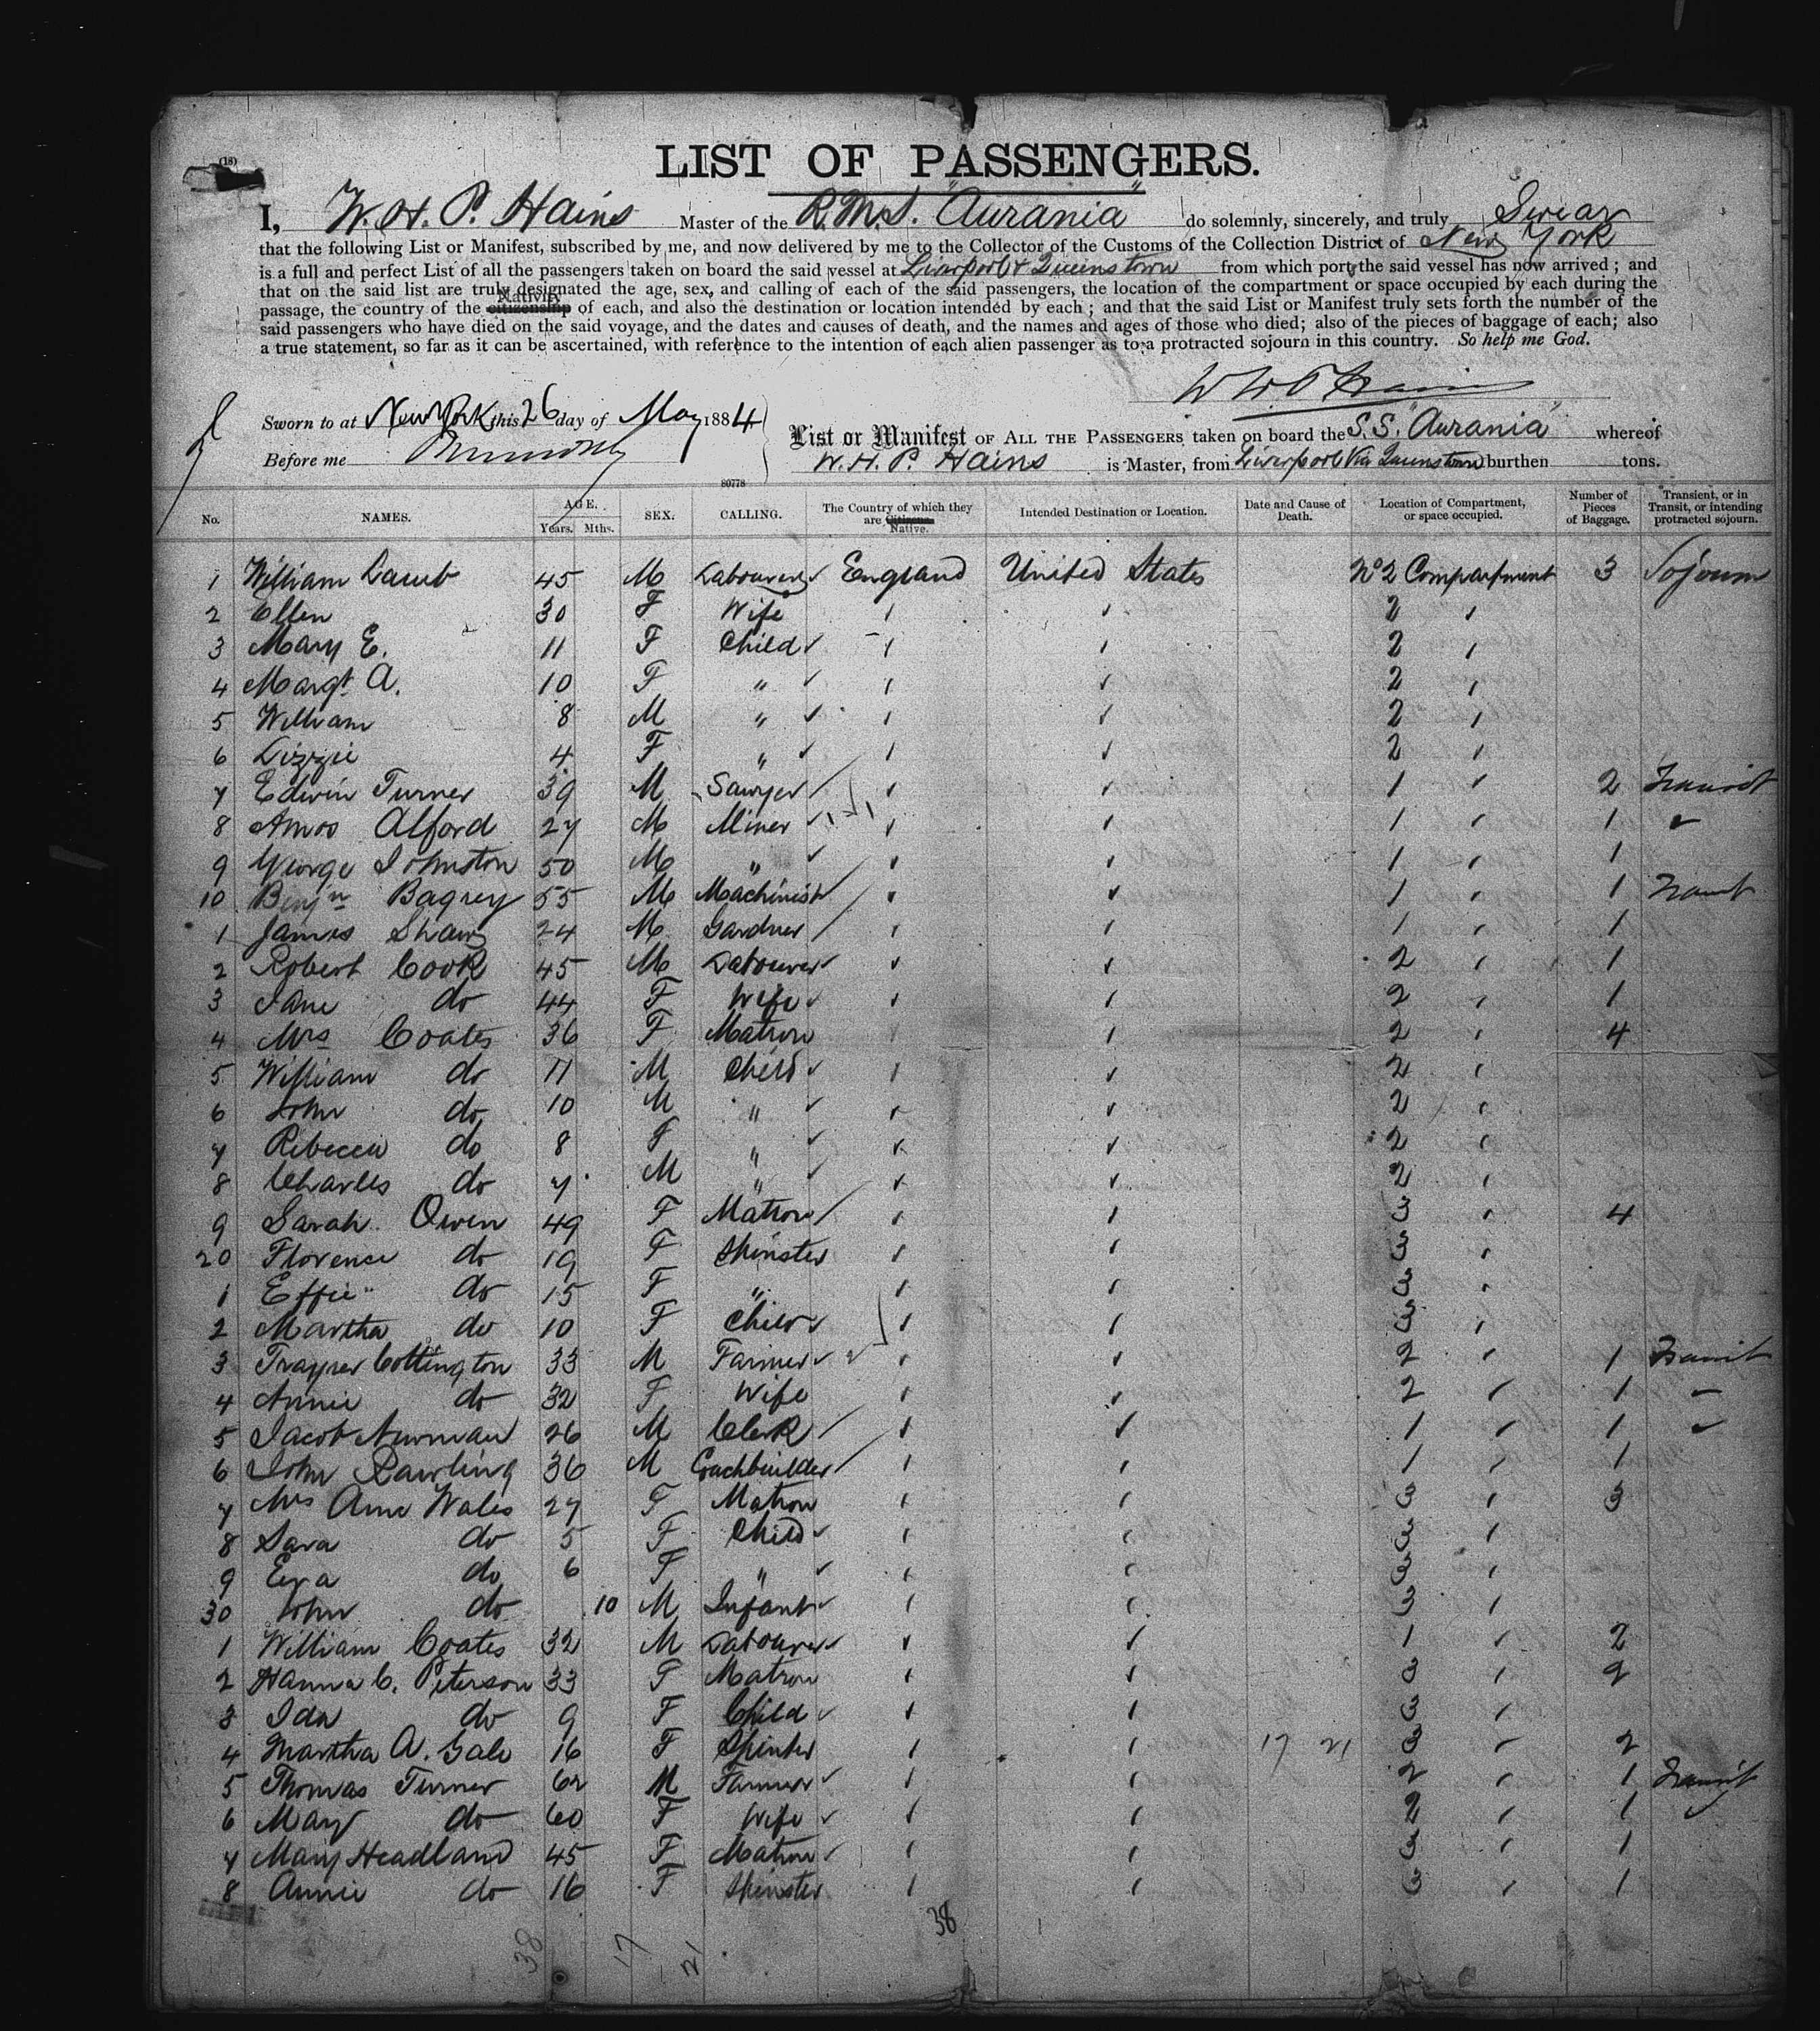 (18)
LIST OF PASSENGERS.
I, W. H. P. Hains Master of the R.M.S. "Aurania" do solemnly, sincerely, and truly Swear
that the following List or Manifest, subscribed by me, and now delivered by me to the Collector of the Customs of the Collection District of New York
is a full and perfect List of all the passengers taken on board the said vessel at Liverpool & Queenstown from which port the said vessel has now arrived; and
that on the said list are truly designated the age, sex, and calling of each of the said passengers, the location of the compartment or space occupied by each during the
Nativity
passage, the country of the citizenship of each, and also the destination or location intended by each; and that the said List or Manifest truly sets forth the number of the
said passengers who have died on the said voyage, and the dates and causes of death, and the names and ages of those who died; also of the pieces of baggage of each; also
a true statement, so far as it can be ascertained, with reference to the intention of each alien passenger as to a protracted sojourn in this country. So help me God.
W H P Hains
Sworn to at New York this 26 day of May 1884
Before me
List or Manifest OF ALL THE PASSENGERS taken on board the S.S. "Aurania" whereof
W. H. P. Hains is Master, from Liverpool Via Queenstown burthen tons.
80778
No. NAMES. AGE. Years. Mths. SEX. CALLING. The Country of which they are Citizens. Native. Intended Destination or Location. Date and Cause of Death. Location of Compartment, or space occupied. Number of Pieces of Baggage. Transient, or in Transit, or intending protracted sojourn.
1 William Lamb 45 M Labourer England United States No 2 Compartment 3 Sojourn
2 Ellen 30 F Wife 2
3 Mary E. 11 F Child 2
4 Margt A. 10 F " 2
5 William 8 M " 2
6 Lizzie 4 F " 2
7 Edwin Turner 39 M Sawyer 1 2 Transit
8 Amos Alford 27 M Miner 1 1
9 George Johnston 50 M " 1 1
10 Benjn 55 M Machinist 1 1 Transit
1 James Shaw 24 M Gardner 1 1
2 Robert Cook 45 M Labourer 2 1
3 Jane do 44 F Wife 2 1
4 Mrs Coates 36 F Matron 2 4
5 William do 11 M Child 2
6 John do 10 M " 2
7 Rebecca do 8 F " 2
8 Charles do 7 M " 2
9 Sarah Owen 49 F Matron 3 4
20 Florence do 19 F Spinster 3
1 Effie do 15 F " 3
2 Martha do 10 F Child 3
3 Cottington 33 M Farmer 2 1 Transit
4 Annie do 32 F Wife 2 1
5 Jacob Newman 26 M Clerk 1 1
6 John Rawling 36 M Coachbuilder 1 1
7 Mrs Ann Wales 27 F Matron 3 3
8 Sara do 5 F Child 3
9 Eva do 6 F " 3
30 John do 10 M Infant 3
1 William Coates 32 M Labourer 1 2
2 Hanna C. Peterson 33 F Matron 3 2
3 Ida do 9 F Child 3
4 Martha A. Gale 16 F Spinster 17 21 3 2
5 Thomas Turner 62 M Farmer 2 1 Transit
6 Mary do 60 F Wife 2 1
7 Mary Headland 45 F Matron 3 1
8 Annie do 16 F Spinster 3 1
38
38 17 21